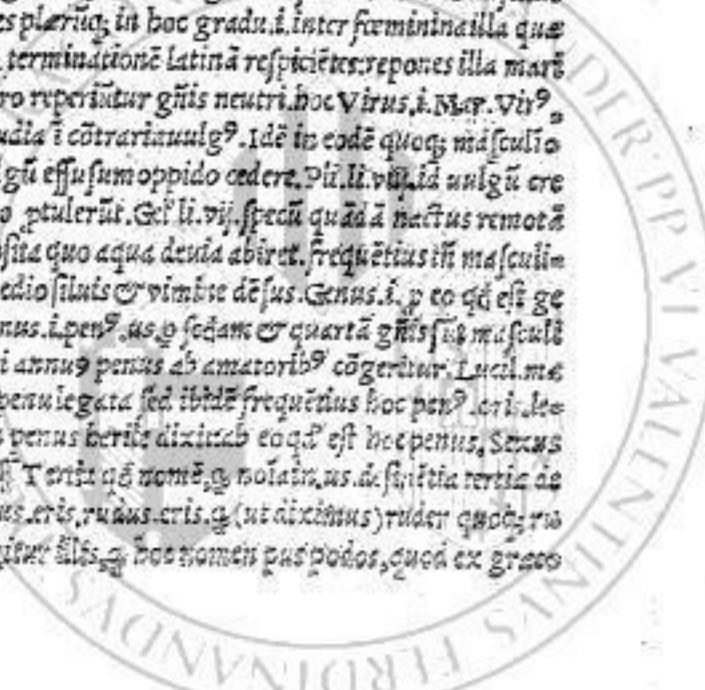 es plæriq; in hoc gradu.i.inter fœminina illa quæ
terminationē latinā respiciētes: repones illa mari
ro reperiūtur gñis neutri.hoc Virus.i.Mar.Vir⁹
udia ī cōtraria uulg⁹.Idē in eodē quoq; masculīo
lgū effusum oppido cedere. li.viij.id uulgū cre
ptulerūt. li.vij.specū quādā nactus remotā
sita quo aqua deuia abiret.frequētius masculi-
edio siluis & vimine dēsus.Genus.i. p eo qđ est ge
nus.i.pen⁹.us. & quartā gñis masculi
i penus ab amatorib⁹ cōgeritur.Lucil.
penu legata sed ibidē frequētius hoc pen⁹.oris.
penus herile dixit ab eo qđ est hoc penus. Sexus
qđ nomē, us. tertia de
us.eris,rudus.eris. (ut diximus) ruder quoq;
hoc nomen pus podos, quod ex græco
DER. PP VI VALENTINUS FERDINANDUS